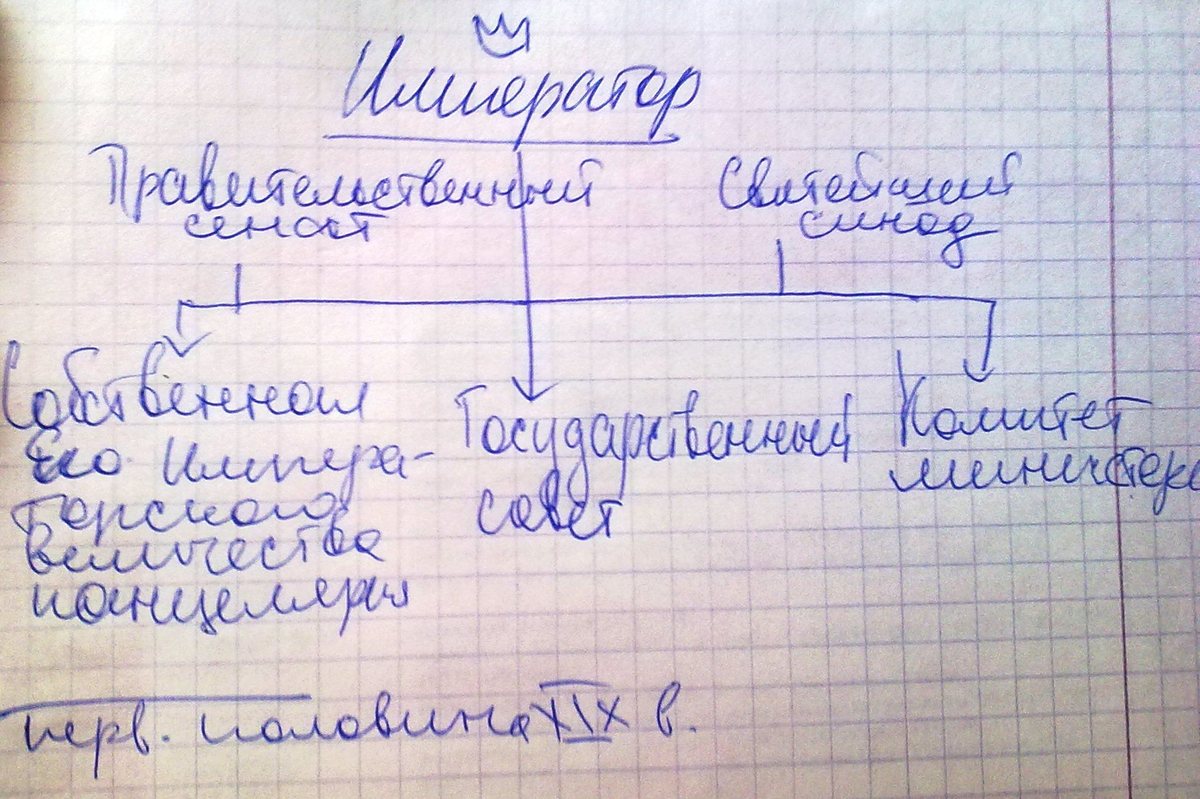 Император
Правительственный
сенат
Святейший
синод
Собственная
Его Импера-
торского
величества
канцелярия
Государственный
совет
Комитет
министерс
перв. половина XIX в.